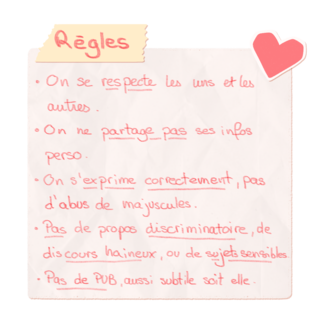 Règles
• On se respecte les uns et les
autres.
• On ne partage pas ses infos
perso.
• On s'exprime correctement, pas
d'abus de majuscules.
• Pas de propos discriminatoire, de
discours haineux, ou de sujets sensibles.
• Pas de PUB, aussi subtile soit elle.